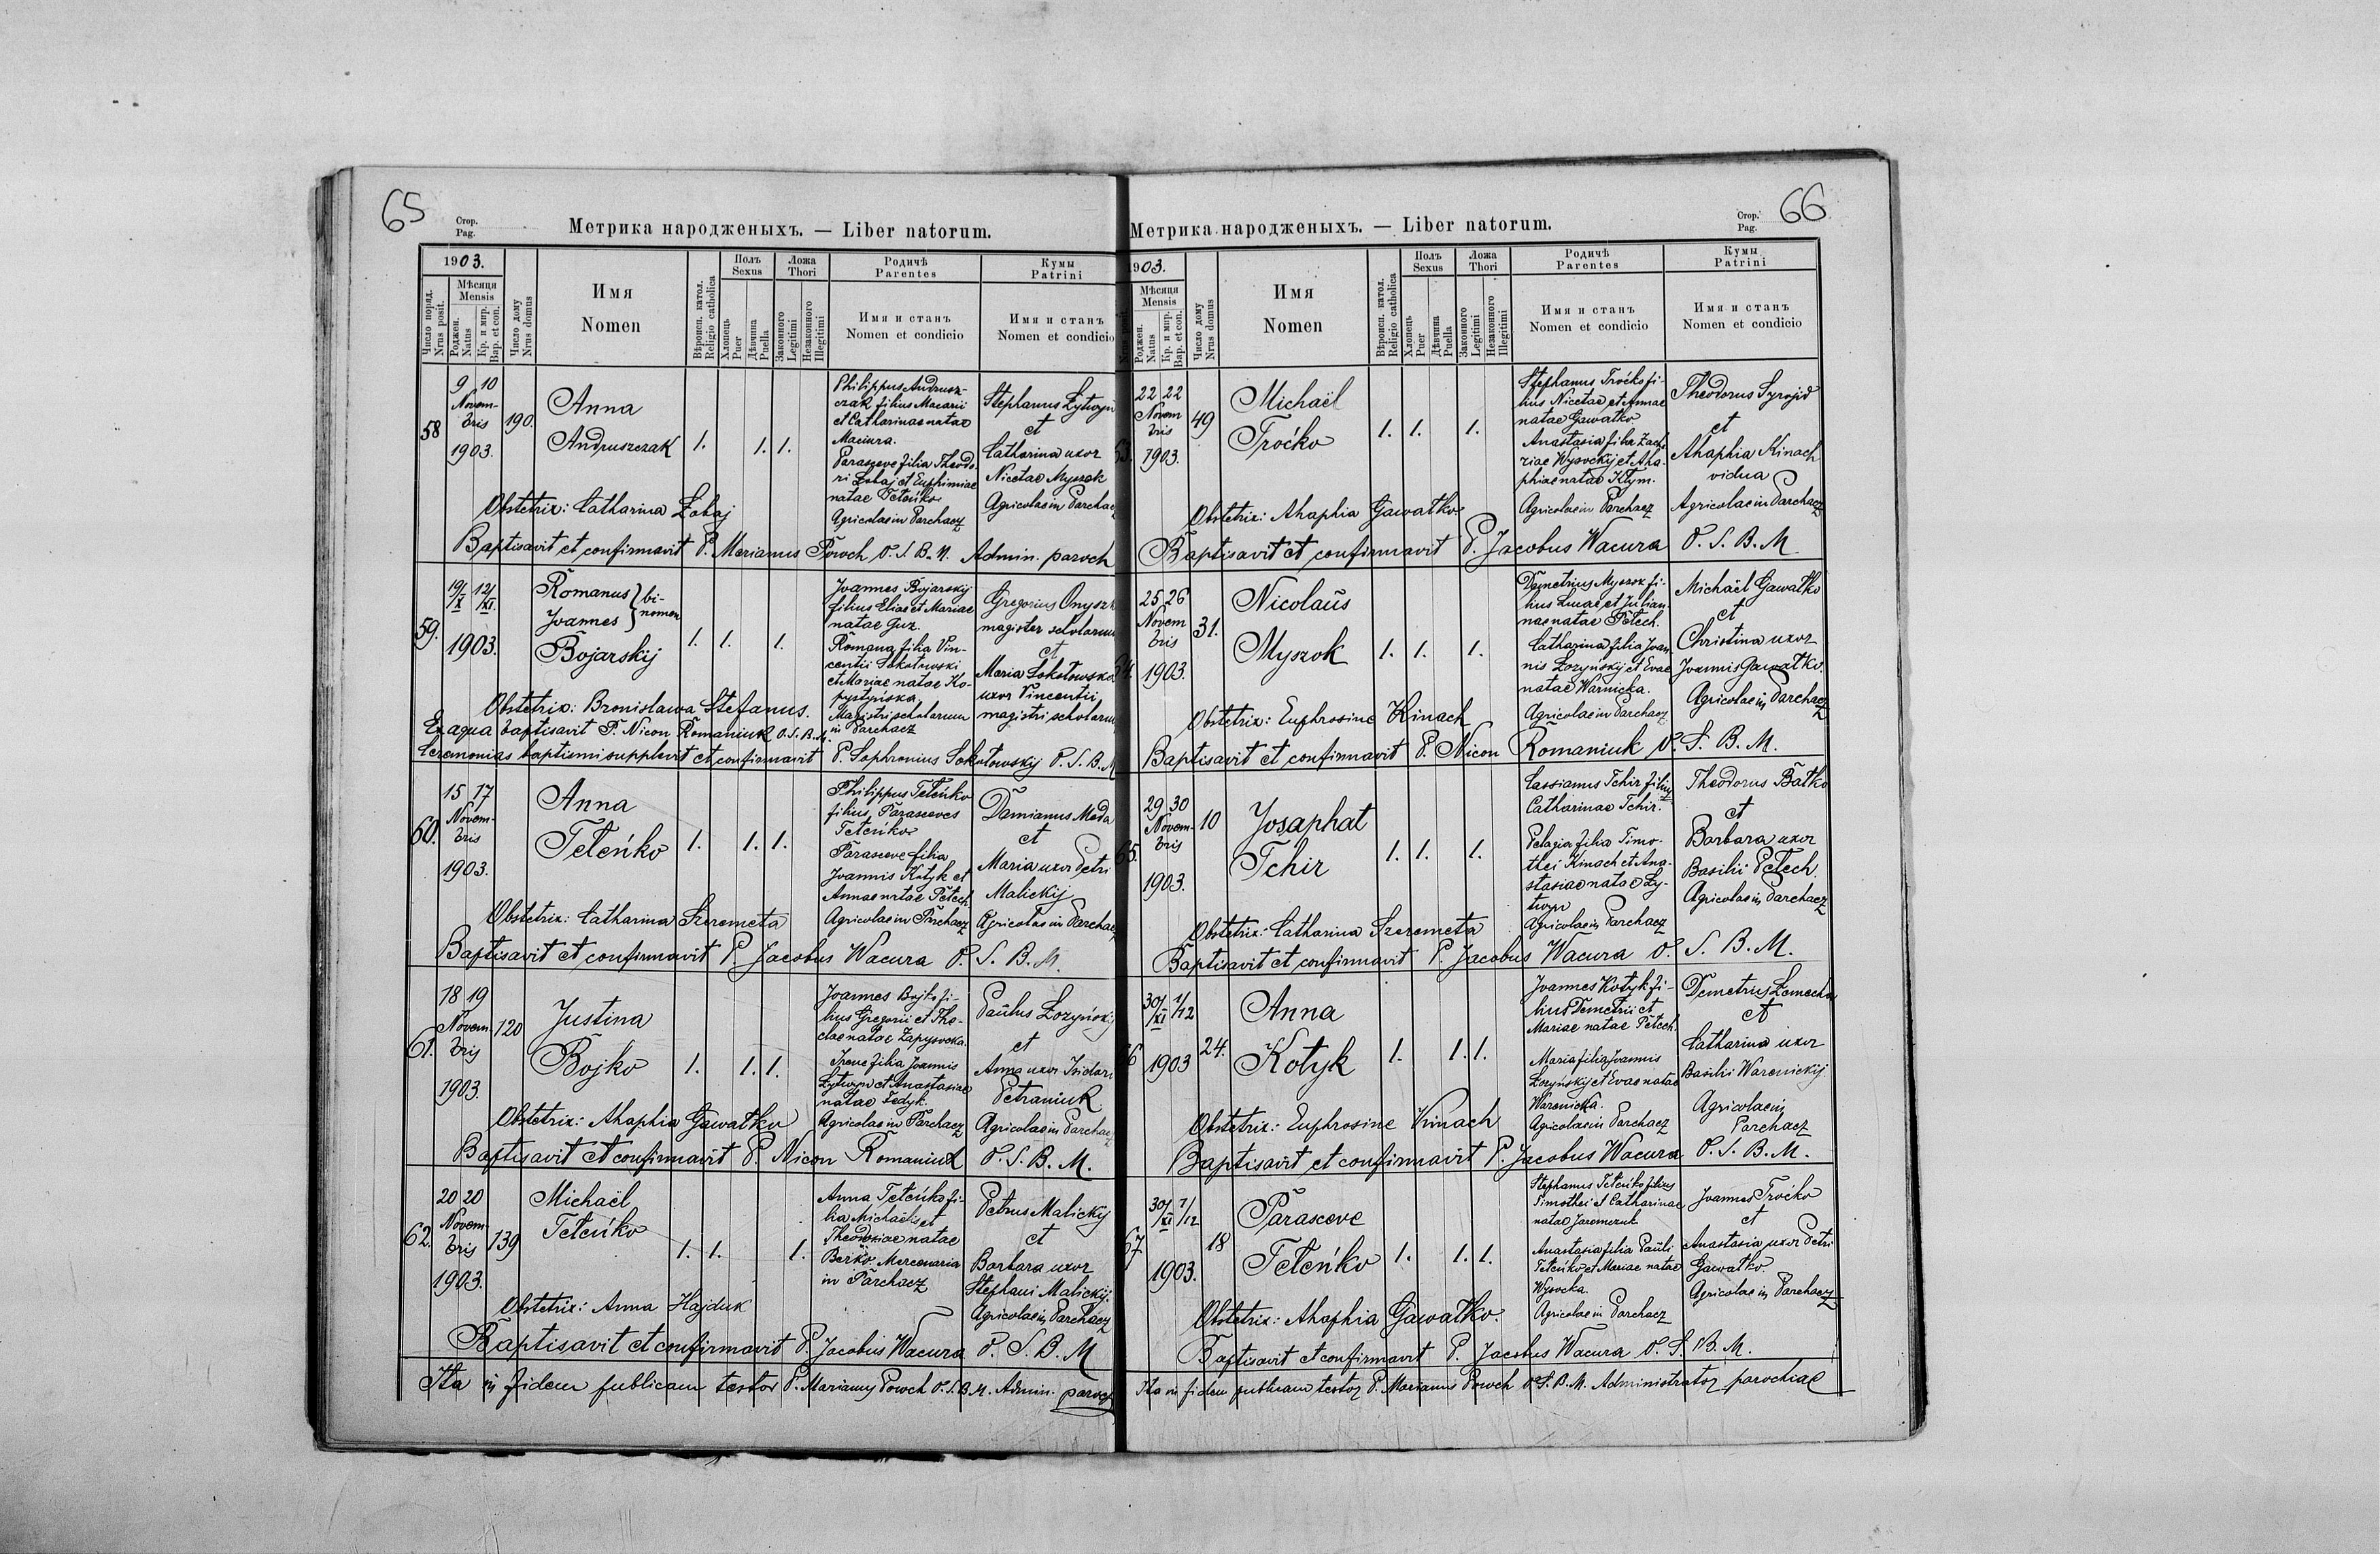 65
Стор.
Pag.
Метрика народженыхъ. — Liber natorum.
1903.
Число поряд.
Nrus posit.
Мѣсяця
Mensis
Роджен.
Natus
Кр. и мир.
Bap. et con.
Число дому
Nrus domus
Имя
Nomen
Вѣроисп. катол.
Religio catholica
Полъ
Sexus
Хлопець
Puer
Дѣвчина
Puella
Ложа
Thori
Законного
Legitimi
Незаконного
Illegitimi
Родичѣ
Parentes
Имя и станъ
Nomen et condicio
Кумы
Patrini
Имя и станъ
Nomen et condicio
58
9 10
Novem-
bris
1903.
190.
Anna
Andruszczak
1. 1. 1.
Philippus Andrusz-
czak filius Macarii
et Catharinae natae
Maciura.
Parasceve filia Theodo-
ri Łobaj et Euphimiae
natae Teteńko
Agricolae in Parchacz
Stephanus Łytwyn
et
Catharina uxor
Nicetae Myszok
Agricolae in Parchacz
Obstetrix: Catharina Łobaj
Baptisavit et confirmavit P. Marianus Powch O. S. B. M. Admin. paroch
59.
19/X 12/XI
1903.
Romanus } bi-
Joannes } nomen
Bojarskij
1. 1. 1.
Joannes Bojarskij
filius Eliae et Mariae
natae Guz.
Romana filia Vin-
centii Sokołowski
et Mariae natae Ko-
pystyńska
Magistri scholarum
in Parchacz
Gregorius
magister scholarum
et
Maria Sokołowska
uxor Vincentii
magistri scholarum
Obstetrix: Bronisława Stefanus.
Ex aqua baptisavit P. Nicon Romaniuk O. S. B. M.
Ceremonias baptismi supplevit et confirmavit P. Sophronius Sokołowskij O. S. B. M
60.
15 17
Novem-
bris
1903.
Anna
Teteńko
1. 1. 1.
Philippus Teteńko
filius Parasceves
Teteńko
Parasceve filia
Joannis Kotyk et
Annae natae Petech.
Agricolae in Parchacz
Damianus Meda
et
Maria uxor Petri
Malickij
Agricolae in Parchacz
Obstetrix: Catharina Szeremeta
Baptisavit et confirmavit P. Jacobus Wacura O. S. B. M.
61.
18 19
Novem-
bris
1903.
120
Justina
Bojko
1. 1. 1.
Joannes Bojko fi-
lius Gregorii et The-
clae natae Zapysocka.
Irene filia Joannis
Łytwyn et Anastasiae
natae Fedyk.
Agricolae in Parchacz
Paulus Łozyńskij
et
Anna uxor Isidori
Petraniuk
Agricolae in Parchacz
Obstetrix: Ahaphia Gawatko
Baptisavit et confirmavit P. Nicon Romaniuk O. S. B. M.
62.
20 20
Novem-
bris
1903.
139
Michaël
Teteńko
1. 1. 1.
Anna Teteńko fi-
lia Michaëlis et
Theodosiae natae
Beńko. Mercenaria
in Parchacz
Petrus Malickij
et
Barbara uxor
Stephani Malickij.
Agricolae in Parchacz
Obstetrix: Anna Hajduk
Baptisavit et confirmavit P. Jacobus Wacura O. S. B. M
Ita in fidem publicam testor P. Marianus Powch O. S. B. M. Admin. paroch
66
Стор.
Pag.
Метрика народженыхъ. — Liber natorum.
1903.
Nrus posit.
Мѣсяця
Mensis
Роджен.
Natus
Кр. и мир.
Bap. et con.
Число дому
Nrus domus
Имя
Nomen
Вѣроисп. катол.
Religio catholica
Полъ
Sexus
Хлопець
Puer
Дѣвчина
Puella
Ложа
Thori
Законного
Legitimi
Незаконного
Illegitimi
Родичѣ
Parentes
Имя и станъ
Nomen et condicio
Кумы
Patrini
Имя и станъ
Nomen et condicio
63.
22 22
Novem
bris
1903.
49
Michaël
Troćko
1. 1. 1.
Stephanus Troćko fi-
lius Nicetae et Annae
natae Gawatko
Anastasia filia Zacha-
riae Wysockij et Aha-
phiae natae Kłym.
Agricolae in Parchacz
Theodorus Syrojid
et
Ahaphia Kinach
vidua
Agricolae in Parchacz
Obstetrix: Ahaphia Gawatko
Baptisavit et confirmavit P. Jacobus Wacura O. S. B. M
64.
25 26
Novem
bris
1903.
31.
Nicolaüs
Myszok
1. 1. 1.
Demetrius Myszok fi-
lius Lucae et Julian-
nae natae Petech.
Catharina filia Joan-
nis Łozyńskij et Evae
natae Warnicka.
Agricolae in Parchacz
Michaël Gawatko
et
Christina uxor
Joannis Gawatko.
Agricolae in Parchacz
Obstetrix: Euphrosine Kinach
Baptisavit et confirmavit P. Nicon Romaniuk O. S. B. M.
65.
29 30
Novem-
bris
1903.
10
Josaphat
Tchir
1. 1. 1.
Cassianus Tchir filius
Catharinae Tchir.
Pelagia filia Timo-
thei Kinach et Ana-
stasiae natae Ły-
twyn
Agricolae in Parchacz
Theodorus Batko
et
Barbara uxor
Basilii Petech.
Agricolae in Parchacz
Obstetrix: Catharina Szeremeta
Baptisavit et confirmavit P. Jacobus Wacura O. S. B. M.
66
30/XI 1/12
1903
24.
Anna
Kotyk
1. 1. 1.
Joannes Kotyk fi-
lius Demetrii et
Mariae natae Petech.
Maria filia Joannis
Łozyńskij et Evae natae
Warenicka.
Agricolae in Parchacz
Demetrius Łemecha
et
Catharina uxor
Basilii Warenickij
Agricolae in
Parchacz
Obstetrix: Euphrosine Kinach
Baptisavit et confirmavit P. Jacobus Wacura O. S. B. M.
67
30/XI 1/12
1903.
18
Parasceve
Teteńko
1. 1. 1.
Stephanus Teteńko filius
Timothei et Catharinae
natae Jaremczuk
Anastasia filia Pauli
Teteńko et Mariae natae
Wysocka.
Agricolae in Parchacz
Joannes Troćko
et
Anastasia uxor Petri
Gawatko.
Agricolae in Parchacz
Obstetrix: Ahaphia Gawatko.
Baptisavit et confirmavit P. Jacobus Wacura O. S. B. M.
Ita in fidem publicam testor P. Marianus Powch O. S. B. M. Administrator parochiae